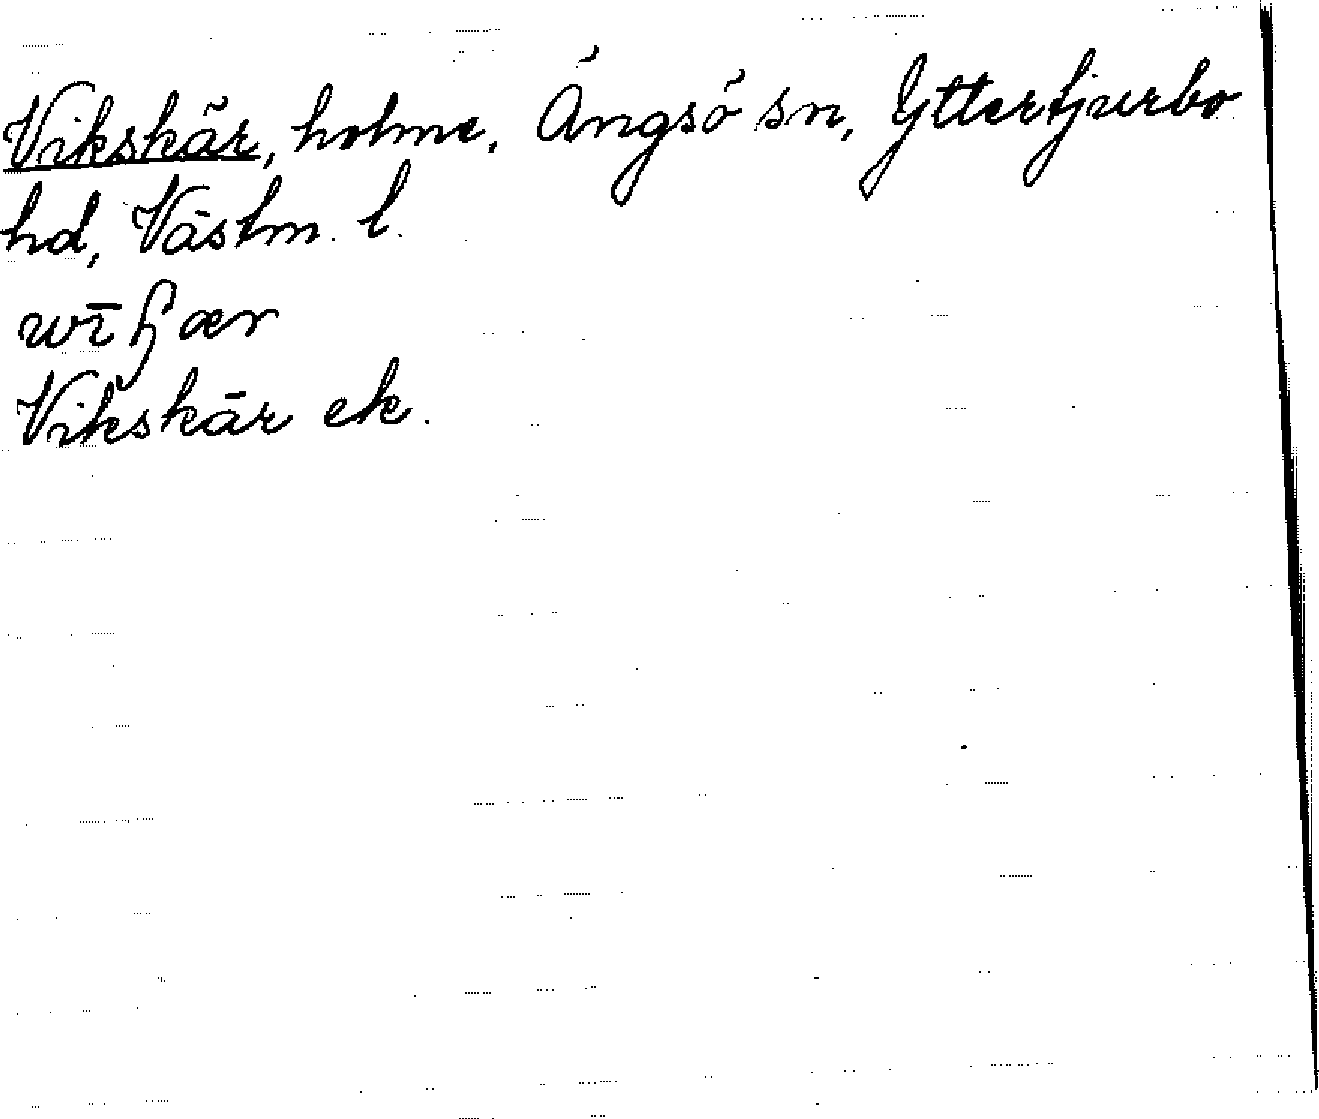 Vikskär, holme, Ängsö sn, Yttertjurbo
hd, Västm. l.
wīɧær
Vikskär ek.